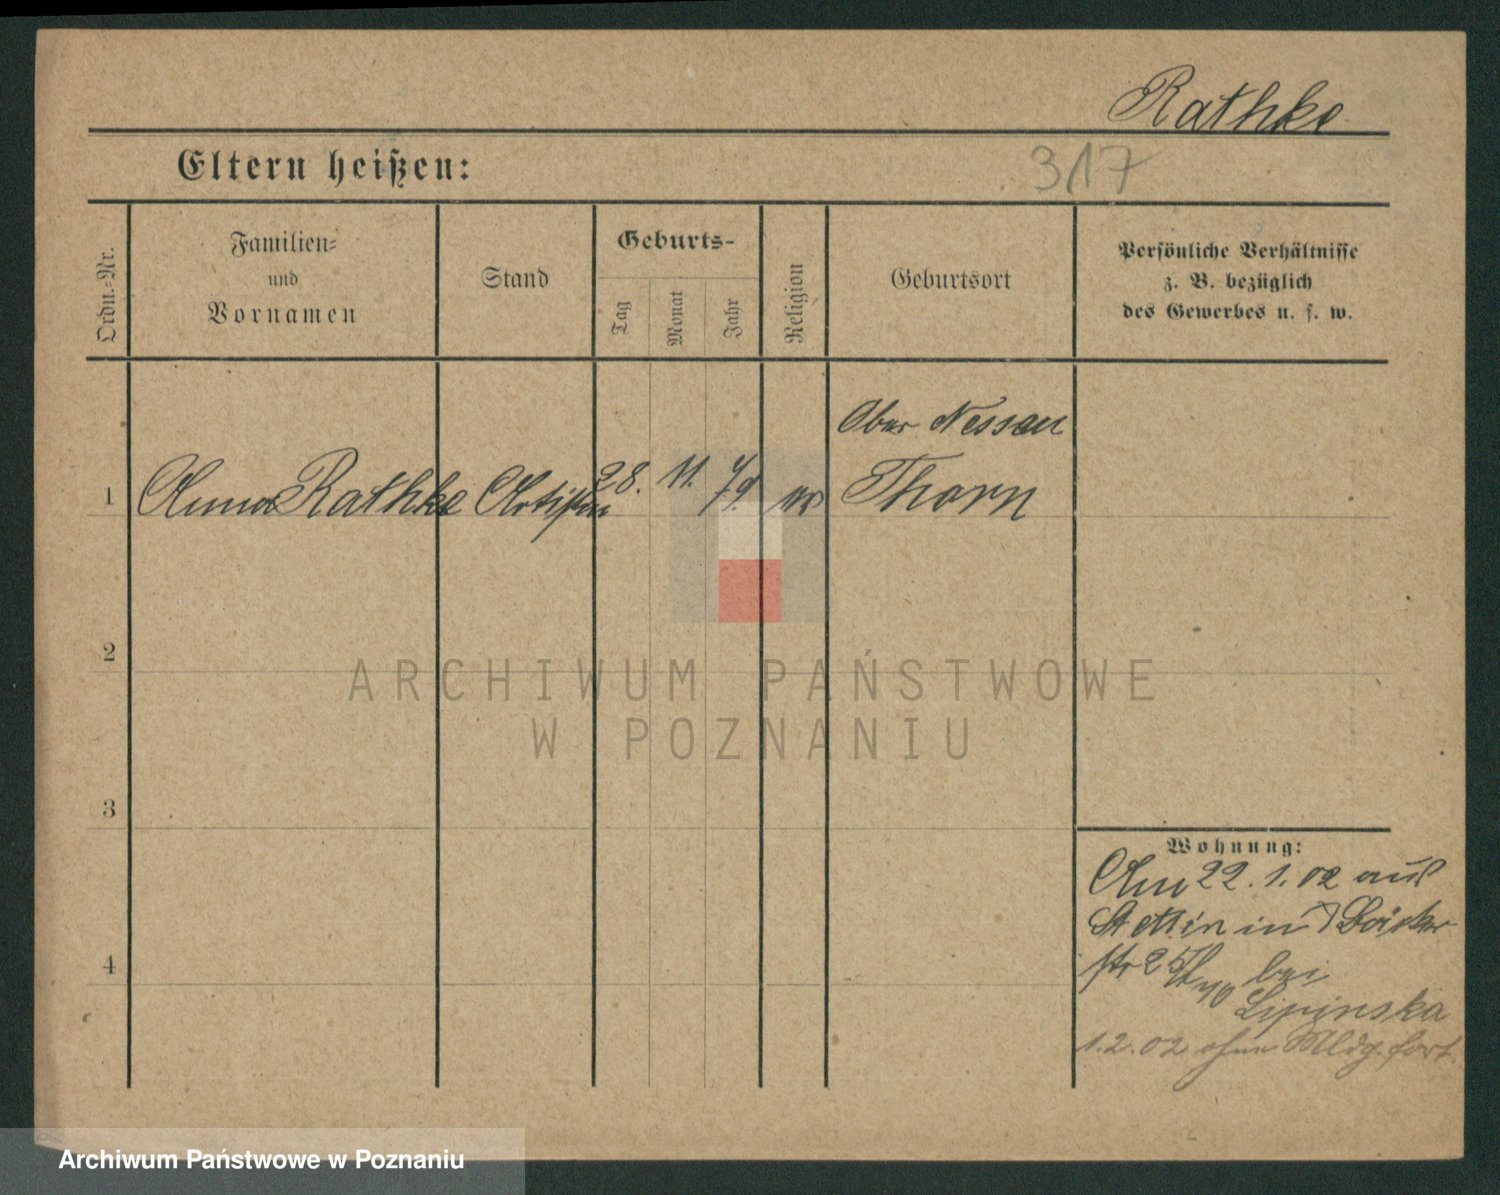 Rathke
Eltern heißen:
317
Ordn.-Nr.
Familien-
und
Vornamen
Stand
Geburts-
Tag
Monat
Jahr
Religion
Geburtsort
Persönliche Verhältnisse
z. B. bezüglich
des Gewerbes u. s. w.
Ober Nessau
1 Anna Rathke Artistin 28. 11. 79. Thorn
2
ARCHIWUM PAŃSTWOWE
W POZNANIU
3
Wohnung:
Am 22.1.02 aus
Stettin in Bäcker
4
str 25 bei
Lipinska
1.2.02 ohne Mldg. fort.
Archiwum Państwowe w Poznaniu